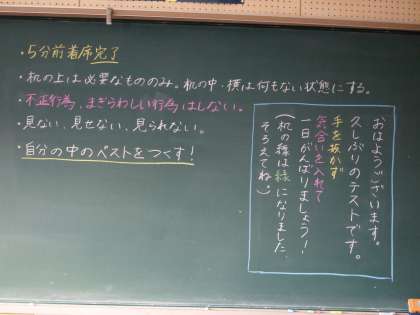 ・5分前着席完了
・机の上は必要なもののみ。机の中、横は何もない状態にする。
・不正行為、まぎらわしい行為はしない。
・見ない、見せない、見られない。
・自分の中のベストをつくす!
おはようございます。
久しぶりのテストです。
手を抜かず
気合いを入れて
一日がんばりましょう!
(机の種は緑になりました。
そろえてね。)